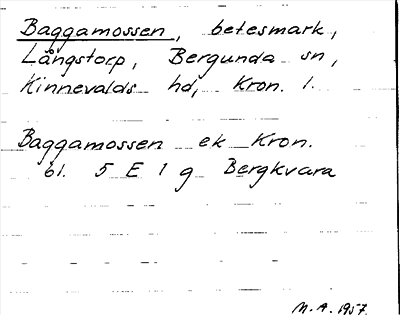 Baggamossen, betesmark,
Långstorp, Bergunda sn,
Kinnevalds hd, Kron. l.
Baggamossen ek Kron.
bl. 5 E 1 g Bergkvara
M. A. 1957.